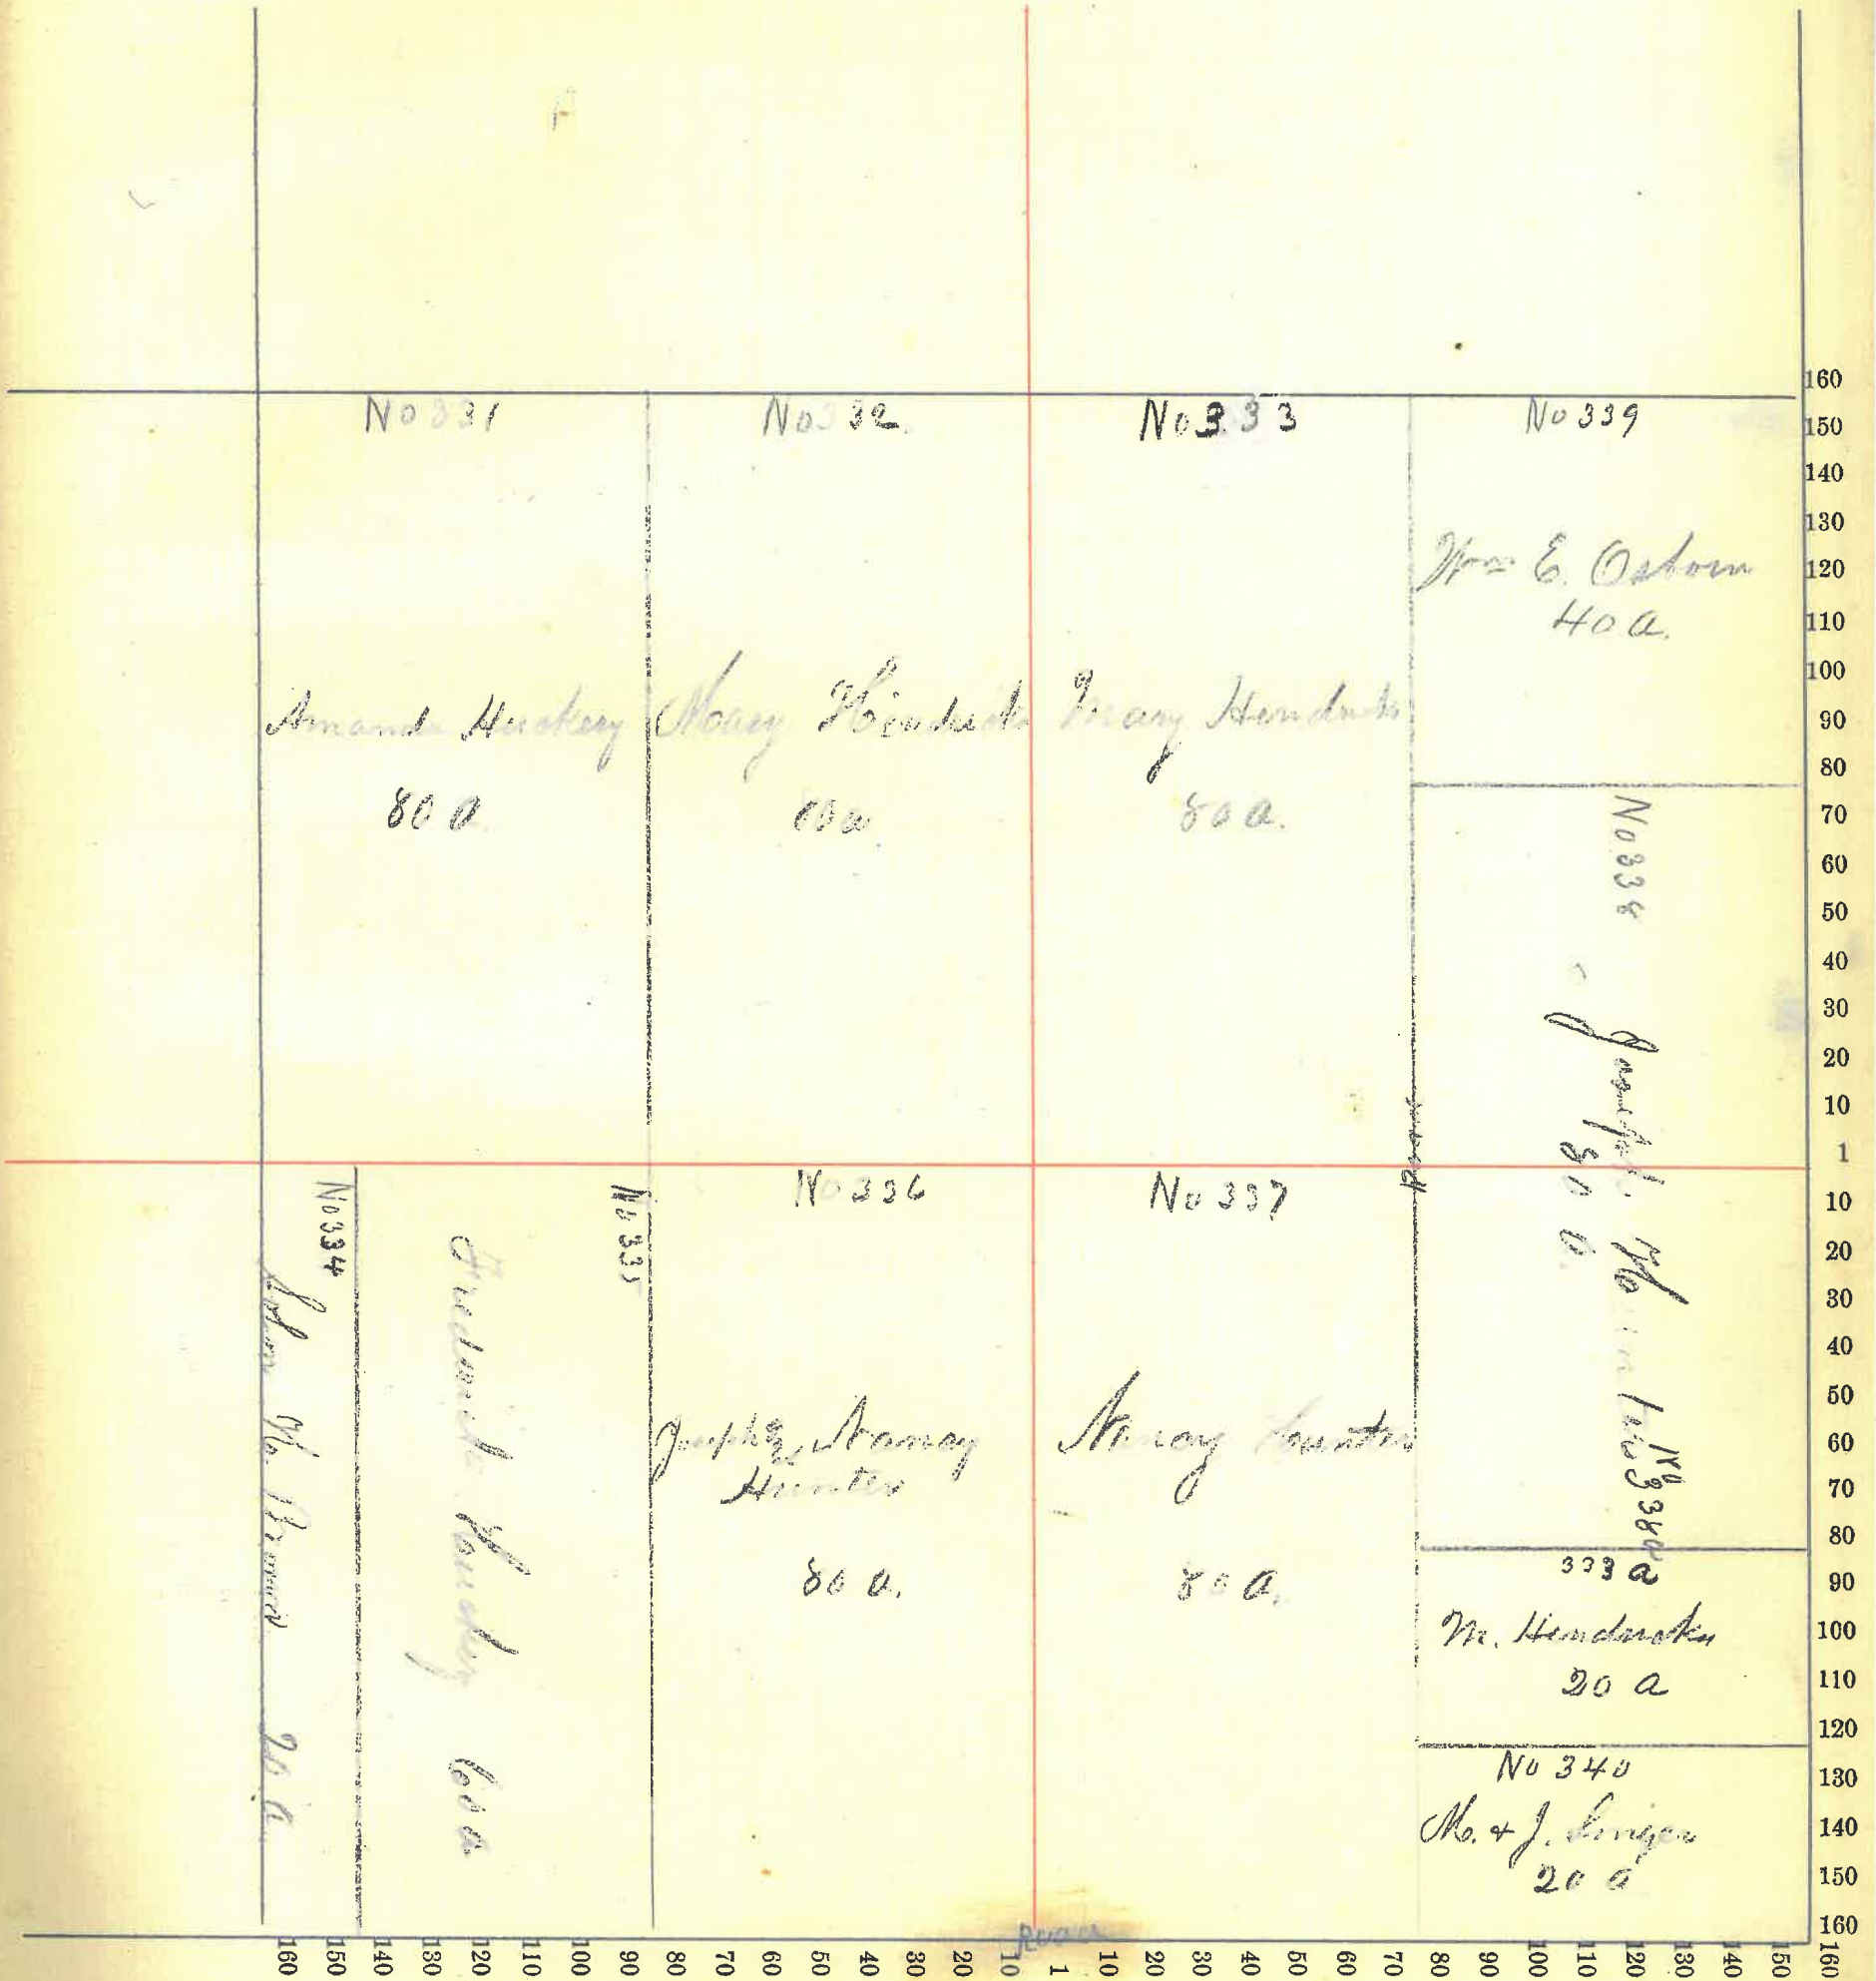 No 331
No 332.
No 333
No 339
Wm E. Osborn
40 a.
Amanda Huckery
80 a
Mary Hendricks
80 a.
Mary Hendricks
80 a.
No 338
Joseph
80 a.
No 338a
Road
No 334
John
20 a.
No 335
Frederick
60 a
No 336
Joseph & Nancy
Hunter
80 a.
No 337
Nancy Hunter
80 a.
333 a
M. Hendricks
20 a
No 340
M. & J. Singer
20 a
Road
160
150
140
130
120
110
100
90
80
70
60
50
40
30
20
10
1
10
20
30
40
50
60
70
80
90
100
110
120
130
140
150
160
160 150 140 130 120 110 100 90 80 70 60 50 40 30 20 10 1 10 20 30 40 50 60 70 80 90 100 110 120 130 140 150 160